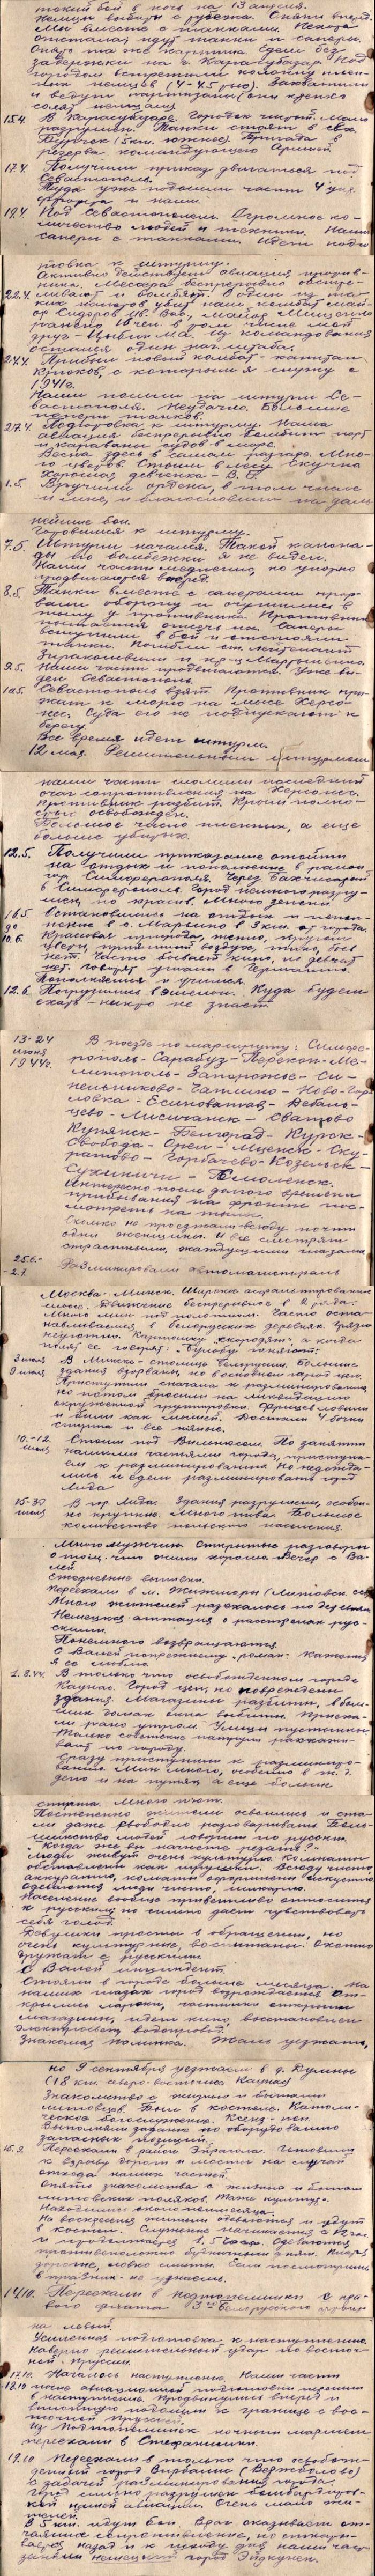 тский бой в ночь на 13 апреля.
Немцы выбиты с рубежа. Снова вперед.
Мы вместе с танками. Пехота
отстала, идут танки и саперы.
Опять та же картина. Едем без
задержки на г. Карасубазар. Под
городом встретили колонну плен-
ных немцев (4-4.5 тыс). Захватили
и ведут партизаны.
солят немцам
15.4. В Карасубазаре. Городок чистый. Мало
разрушен. Танки стоят в сел.
Бурчек (5 км. южнее). Бригада в
резерве командующего Армией.
17.4. Получили приказ двигаться под
Севастополь.
Туда уже подошли части 4 укр.
фронта и наши.
19.4. Под Севастополем. Огромное ко-
личество людей и техники. Наши
саперы с танками. Идет подго-
товка к штурму.
Активно действует авиация против-
ника. Мессера беспрерывно обстре-
22.4. ливают и бомбят. В один из та-
ких налетов убит наш комбат май-
ор Сидоров Ив. Вас, майор Мищенко
ранено 10 чел. в том числе мой
друг - Цыбин М.А. Из командования
остался один нач. штаба.
24.4. Прибыл новый комбат - капитан
Крюков, с которым я служу с
1941 г.
Наши пошли на штурм Се-
вастополя. Неудачно. Большие
потери танков.
27.4. Подготовка к штурму. Наша
авиация беспрерывно бомбит порт
и караваны судов в море.
Весна здесь в самом разгаре. Мно-
го цветов. Стоим в лесу. Скучно
Хорошая девченка - В. Б.
1.5. Вручили ордена, в том числе
и мне, и благословили на даль
нейшие бои.
Готовимся к штурму.
7.5. Штурм начался. Такой канона-
ды и бомбежки я не видел.
Наши части медленно, но упорно
продвигаются вперед.
8.5. Танки вместе с саперами прор-
вали оборону и очутились в
тылу у противника. Противник
попытался отсечь их. Саперы
вступили в бой и отстояли
танки. Погибли ст. лейтенант
и кр-ц Мартыненко.
9.5. Наши части продвигаются. Уже ви-
ден Севастополь.
10.5. Севастополь взят. Противник при-
жат к морю на мысе Херсо-
нес. Суда его не подпускают к
берегу.
Все время идет штурм.
12 мая. Решительным штурмом
наши части сломили последний
очаг сопротивления на Херсонесе.
Противник разбит. Крым полно-
стью освобожден.
Большое число пленных, а еще
больше убитых.
12.5. Получили приказание отойти
на отдых и пополнение в район
гор Симферополя. Через Бахчисарай
в Симферополь. Город немного разру-
шен, но красив. Много зелени.
16.5 Остановились на отдых и попол-
до нение в с. Марьино в 3 км. от города
10.6. Красивая природа, тепло, кругом
цветы, приятный воздух, тихо, боев
нет. Часто бывает кино, но девчат
нет. Говорят угнали в Германию.
Пополняемся и учимся.
12.6. Погрузились в эшелон. Куда будем
ехать - никто не знает.
13-24 В поезде по маршруту: Симфе-
июня рополь - Сарабуз - Перекоп - Ме-
1944г. литополь - Запорожье - Си-
нельниково - Чаплино - Ново-Гор
ловка - Есиноватая - Дебаль-
цево - Лисичанск - Сватово
Купянск - Белгород - Курск -
Свобода - Орел - Мценск - Ску-
ратово - Горбачево - Козельск -
Сухиничи - Смоленск.
Интересно после долгого времени
пребывания на фронте пос-
мотреть на тылы.
Сколько не проезжали - всюду почти
одни женщины. И все смотрят
страстными, жаждущими глазами.
25.6.- Разминировали автомагистраль
- 2.7. Москва - Минск. Широкая асфальтированная
шоссе. Движение беспрерывное в 2 ряда.
Много мин под полотном. Часто оста-
навливаемся в белорусских деревнях. Грязно
неуютно. Картошку "скородят", а когда
полят ее говорят:
3 июля В Минске - столице Белоруссии. Большие
9 июля здания взорваны, но в основном город цел.
Приступили сначала к разминированию,
но потом бросили на ликвидацию
окруженной группировки. Фрицев ловили
и били как мышей. Достали 4 бочки
спирта и все пьяные.
10.-12. Стоим под Вильнюсом. По занятии
июля нашими частями города, приступа-
ем к разминированию. Но недожда-
лись и едем разминировать город
Лида
15-30 В гор. Лида. Здания разрушены, особен-
июля но крупные. Много пива. Большое
количество польского населения.
Много мужчин. Открытые разговоры
о том, что жили хорошо. Вечер с Ва-
лей.
Ежедневные выпивки.
Переехали в м. Жижморы (Литовск. ССР)
Много жителей разбежалось по деревням
Немецкая агитация о расстрелах рус-
скими.
Понемногу возвращаются.
С Валей попрежнему "роман". Кажется
я ее люблю.
1.8.44. В только что освобожденном городе
Каунас. Город цел, но повреждены
здания. Магазины разбиты, в боль-
ших домах окна выбиты. Приеха-
ли рано утром. Улицы пустынны
Только советские патрули расхажи-
вают по городу.
Сразу приступили к разминиро-
ванию. Мин много, особенно в ж.д.
депо и на путях, а еще больше
спирта. Много пьют.
Постепенно жители освоились и ста-
ли даже свободно разговаривать. Боль-
шинство людей говорит по русски.
"Когда же вы начнете резать?"
Люди живут очень культурно. Комнаты
обставлены как игрушки. Всюду чисто,
аккуратно, комнаты оформлены искусно.
Одеваются люди чисто, шикарно.
Население вообще приветливо относится
к русским, но сильно дает чувствовать
себя голод.
Девушки просты в обращении, но
очень культурные, воспитаны. Охотно
дружат с русскими.
С Валей инцидент.
Стояли в городе больше месяца. На
наших глазах город возрождается. От-
крылись ларьки, частники открыли
магазины, идет кино, восстановлен
электросвет, водопровод.
Знакомая полинка. Жаль уезжать,
но 9 сентября уезжаем в д. Думины
(18 км. северо-восточнее Каунаса)
Знакомство с жизнью и бытом
литовцев. Был в костеле. Католи-
ческое богослужение. Ксенз - поп.
Выполняли задание по оборудованию
запасных позиций.
15.9. Переехали в район Эйрагола. Готовили
к взрыву дороги и мосты на случай
отхода наших частей.
Опять знакомства с жизнью и бытом
литовских поляков. Та же культура.
Находились около месяца.
На воскресенье жители одеваются и идут
в костел. Служение начинается с 12 час.
и продолжается 1.5 часа. Одеваются
противоположно будничным дням. Костюмы
дорогие, ловко сшиты. Если посмотришь
в праздник - не узнаешь.
14.10. Переехали в Подпотемишки с пра-
вого фланга 3го Белорусского фронта
на левый.
Усиленная подготовка к наступлению.
Наверно решительный удар по Восточ-
ной Пруссии.
17.10. Началось наступление. Наши части
18.10 после авиационной подготовки перешли
в наступление. Продвинулись вперед и
вплотную подошли к границе с вос-
точной Пруссией.
Из Подпотемишек ночным маршем
переехали в Стефанишки.
19.10 Переехали в только что освобож-
денный город Вирбалис (Вержболово)
с задачей разминирования города.
Город сильно разрушен бомбардиров-
кой нашей авиации. Очень мало жи-
телей.
В 5 км. идут бои. Враг оказывает от-
чаянное сопротивление, но откаты-
вается назад и к исходу дня наши час
заняли немецкий город Эйдкунен.